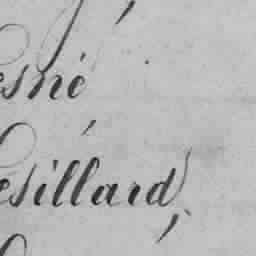 esné
ésillard,